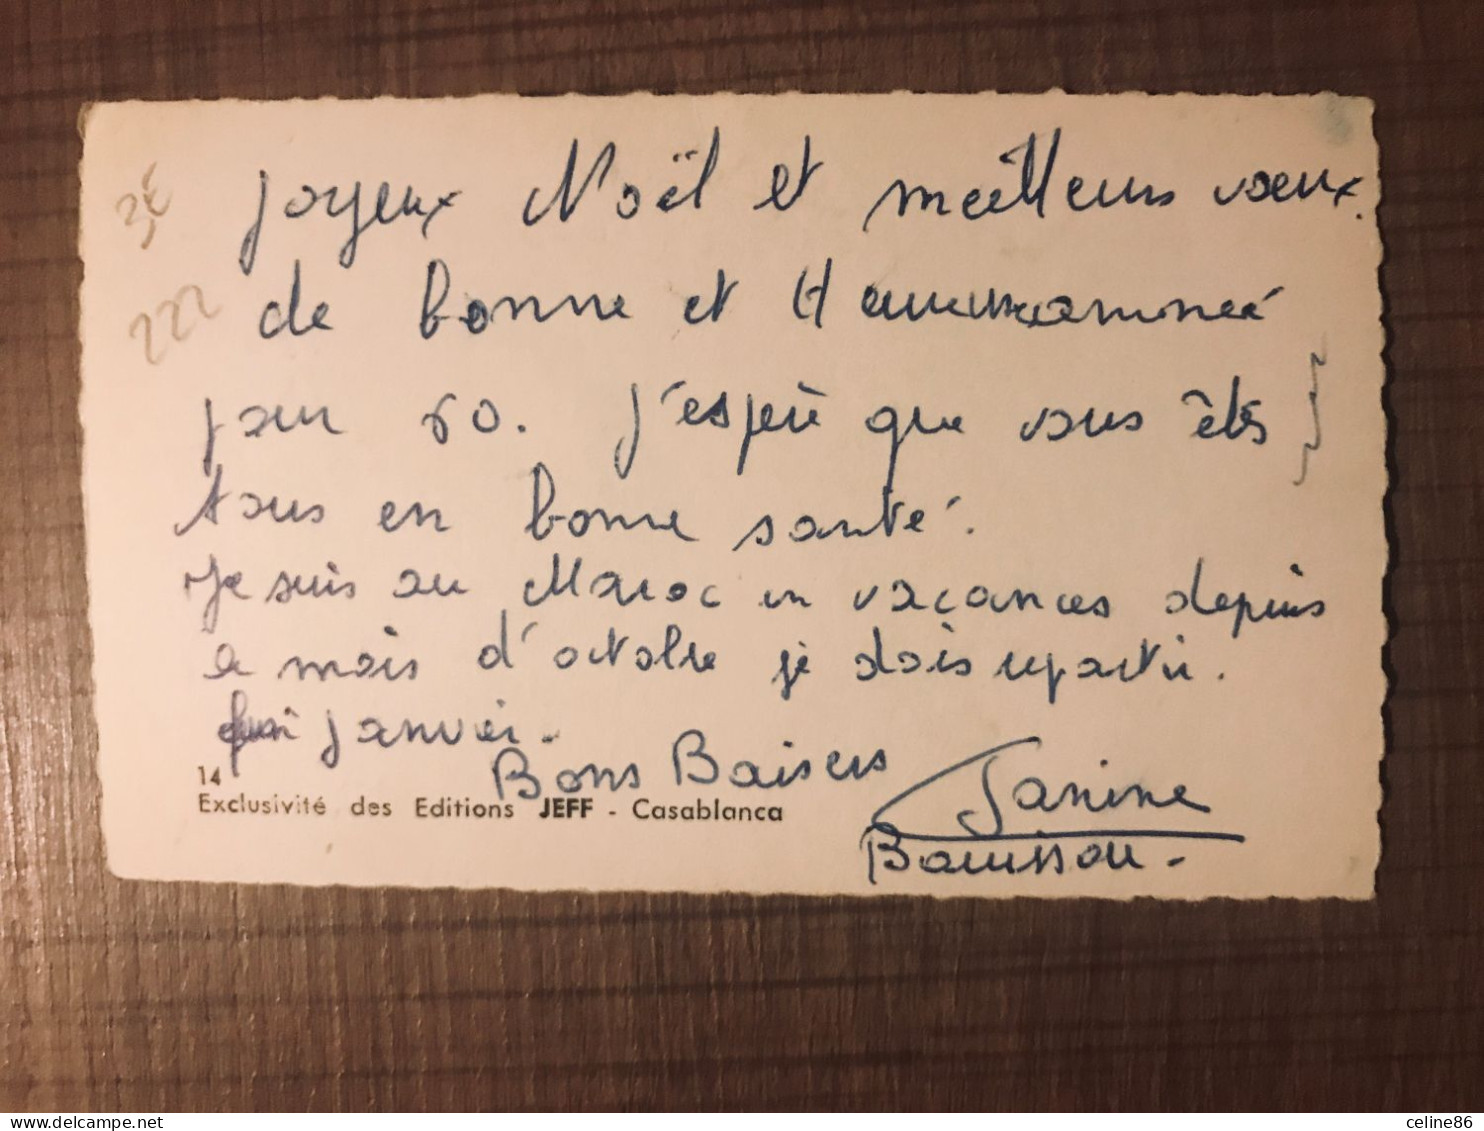 3€
222
Joyeux Noël et meilleurs vœux
de bonne et Heureuse année
pour 60. J'espère que vous êtes
tous en bonne santé.
Je suis au Maroc en vacances depuis
le mois d'octobre je dois repartir.
fin janvier.
Bons Baisers Janine
Bouisson.
14
Exclusivité des Editions JEFF - Casablanca
delcampe.net
celine86